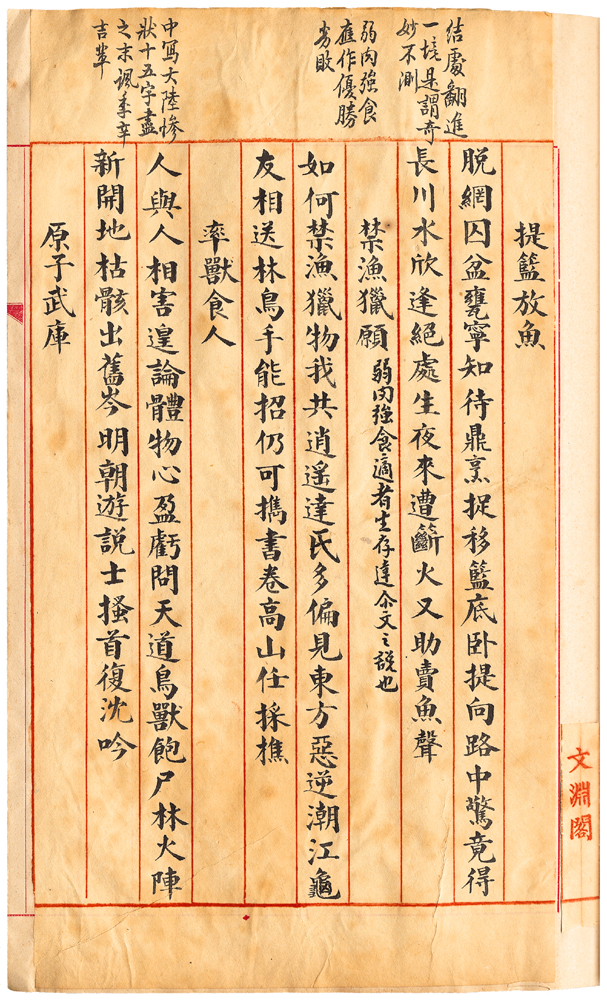 結處翻進
一境是謂奇
妙不測
弱肉強食
應作優勝
劣敗
中寫大陸慘
狀十五字盡
之末諷季辛
吉輩
提籃放魚
脱網囚盆甕寧知待鼎烹捉移籃底卧提向路中驚竟得
長川水欣逢絕處生夜來遭籪火又助賣魚聲
禁漁獵願 弱肉強食適者生存達尒文之說也
如何禁漁獵物我共逍遙達氏多偏見東方惡逆潮江龜
友相送林鳥手能招仍可攜書卷高山任採樵
率獸食人
人與人相害遑論體物心盈虧問天道鳥獸飽尸林火陣
新開地枯骸出舊岑明朝遊說士搔首復沈吟
原子武庫
文淵閣